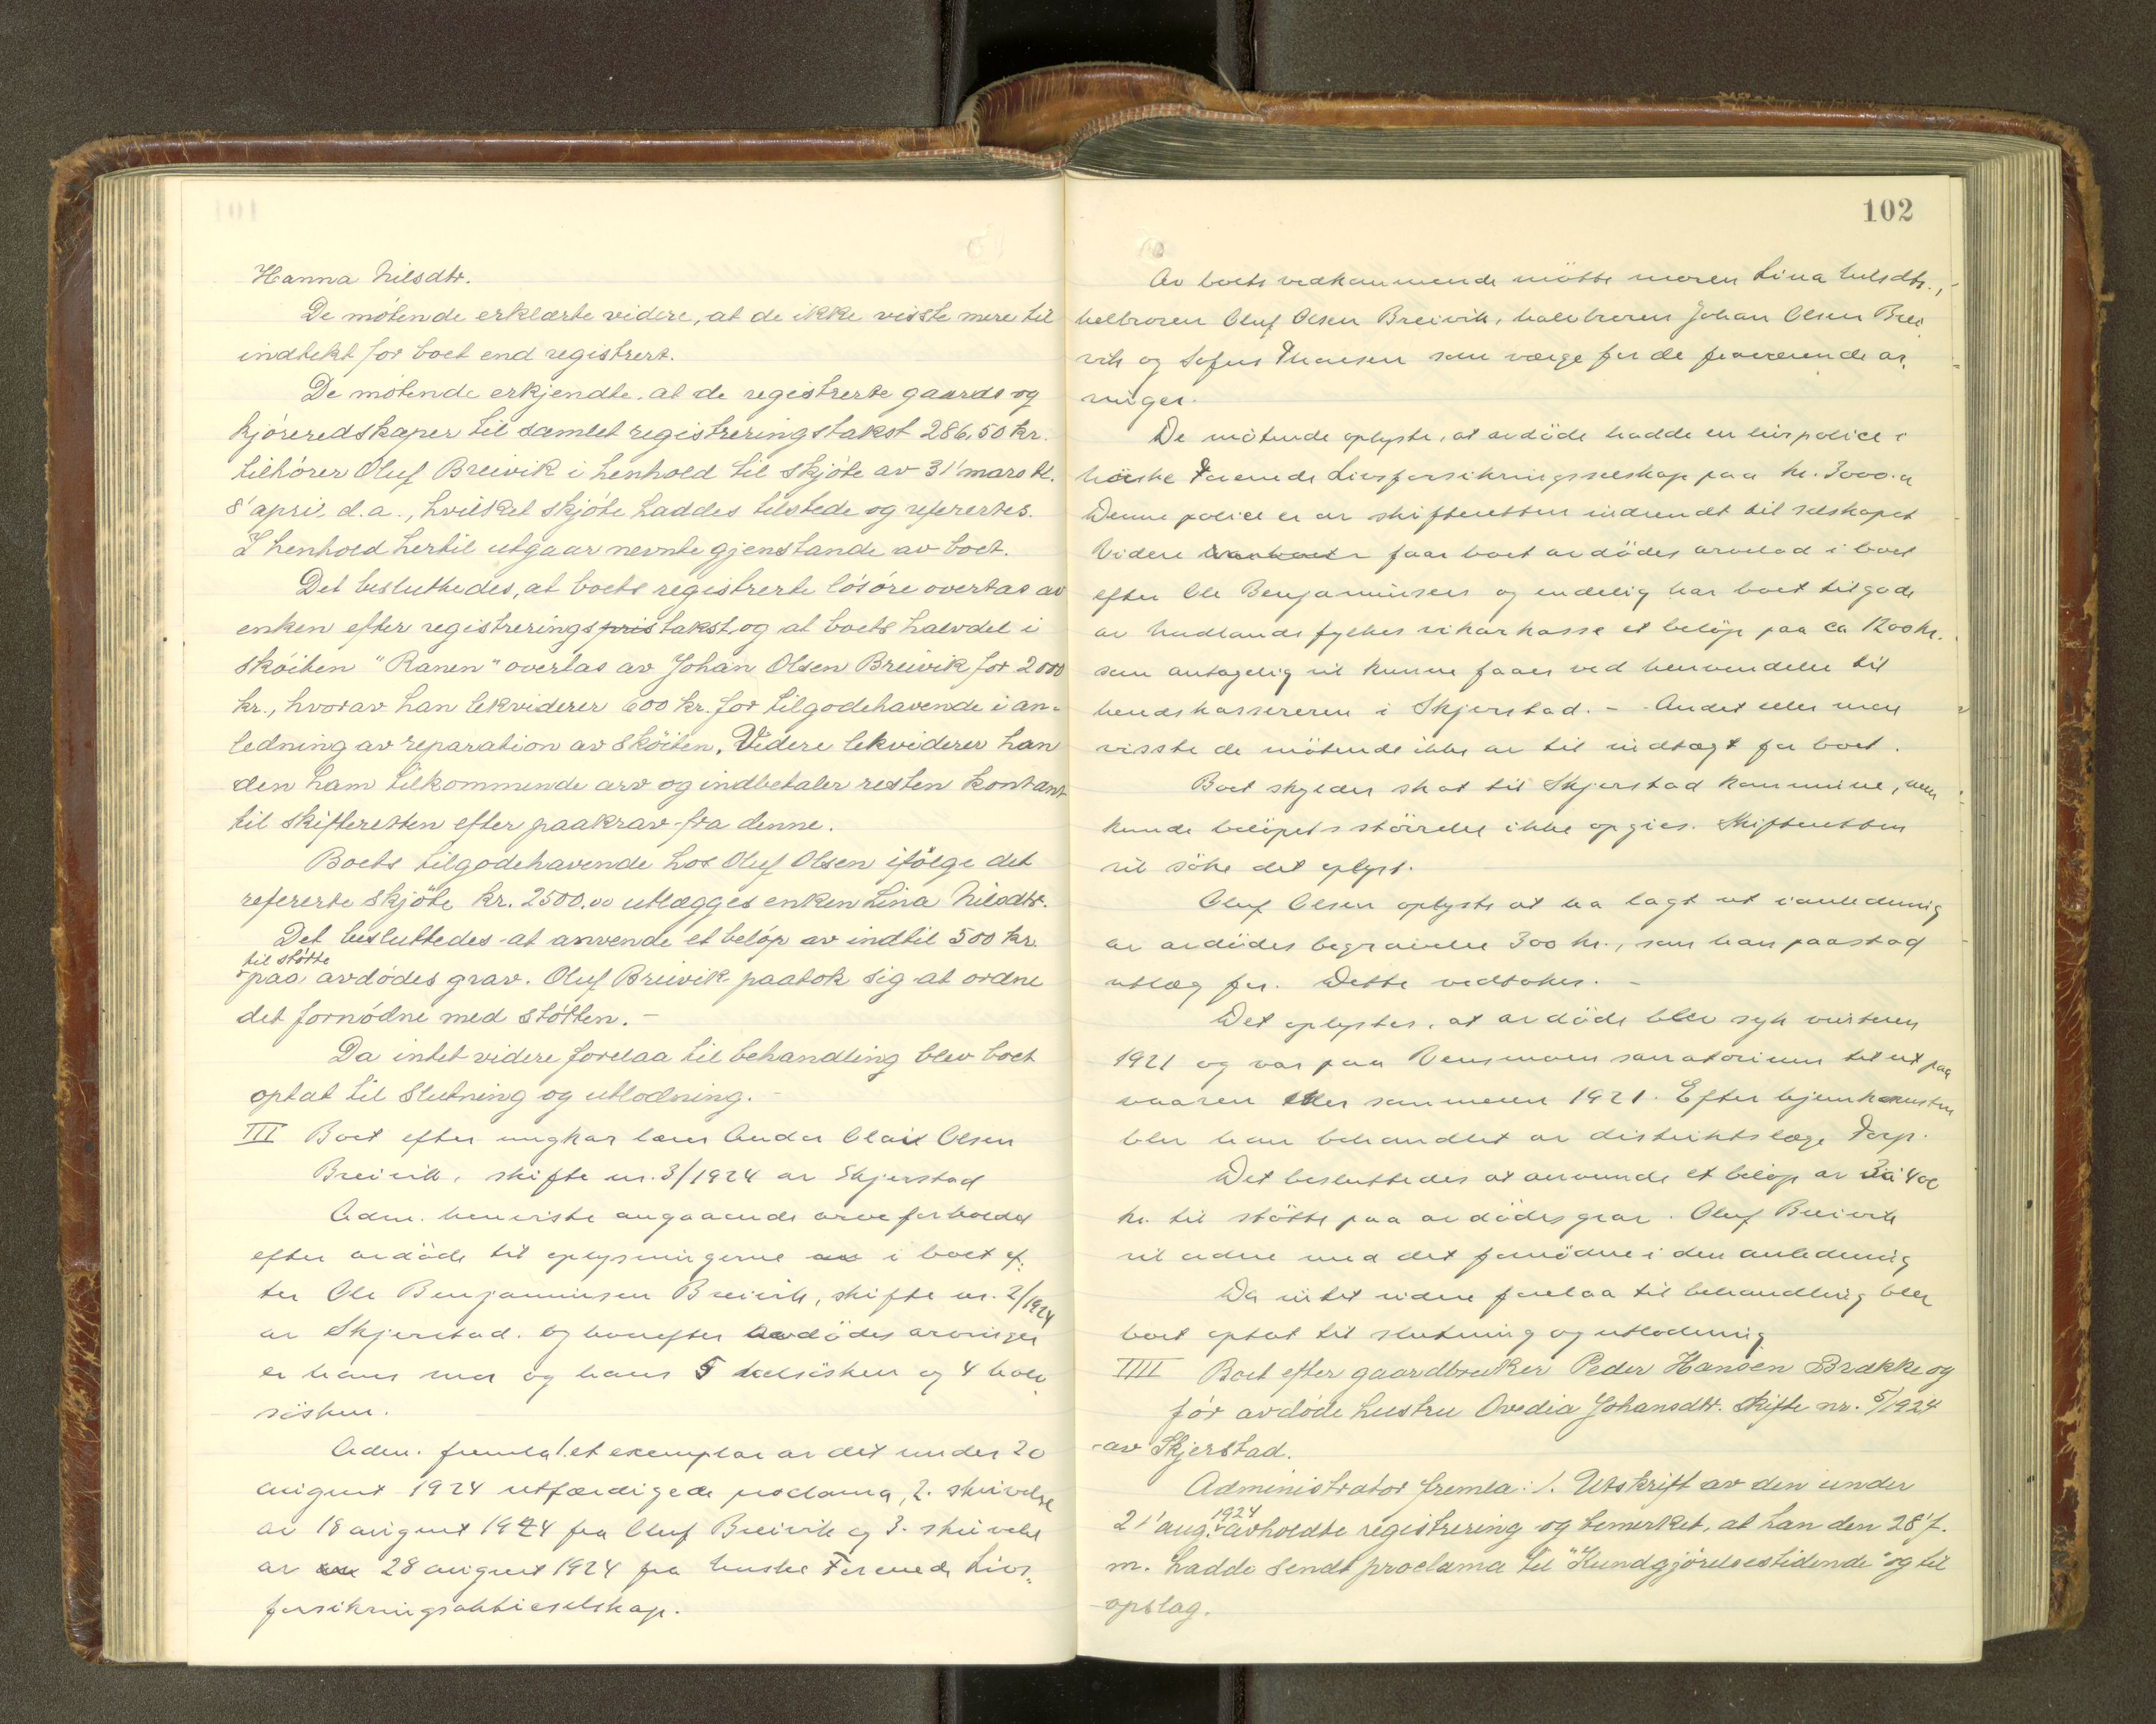 Hanna Nilsdtr.
De møtende erklærte videre, at de ikke visste mere til
indtekt for boet end registrert.
De møtende erkjendte, at de registrerte gaards og
kjøreredskaper til samlet registreringstakst 286,50 kr.
tilhører Oluf Breivik i henhold til skjøte av 31' mars tl.
8' april d.a., hvilket skjøte haddes tilstede og refertes.
I henhold hertil utgaar nevnte gjenstande av boet.
Det besluttedes, at boets registrerte løsøre overtas av
enken efter registreringspristakst, og at boets halvdel i
skøiten "Ranen" overtas av Johan Olsen Breivik for 2000
kr., hvorav han lekviderer 600 kr. for tilgodehavende i an-
ledning av reparation av skøiten. Videre lekviderer han
den ham tilkommende arv og indbetaler resten kontant
til skifteretten efter paakrav fra denne.
Boets tilgodehavende hos Oluf Olsen ifølge det
refererte skjøte kr. 2500.00 utlægges enken Lina Nilsdtr.
Det besluttedes at anvende et beløp av indtil 500 kr.
til støtte
paa avdødes grav. Oluf Breivik paatok sig at ordne
det fornødne med støtten. -
Da intet videre forelaa til behandling blev boet
optat til slutning og utlodning. -
III Boet efter ungkar lærer Olsen
Breivik, skifte nr. 3/1924 av Skjerstad
Adm. henviste angaaende arveforholdet
efter avdøde til oplysningerne i boet ef-
ter Ole Benjaminsen Breivik, skifte nr. 2/1924
av Skjerstad. Og herefter avdødes arvinger
er hans mor og hans 5 helsøsken og 4 halv-
søsken.
Adm. fremla 1. et exemplar av det under 20
august 1924 utfærdigede proclama, 2. skrivelse
av 18 august 1924 fra Oluf Breivik og 3. skrivelse
av 28 august 1924 fra Norske Forenede Livs-
forsikringsaktieselskap.
102
Av boets vedkommende møtte moren Lina Nilsdtr.,
helbroren Oluf Olsen Breivik, halvbroren Johan Olsen Brei
vik og Sofus som værge for de fraværende ar-
vinger.
De møtende oplyste, at avdøde hadde en livspolice i
Norske Forenede Livsforsikringsselskap paa kr. 3000.
Denne police er av skifteretten indsendt til selskapet
Videre faar boet avdødes arvelod i boet
efter Ole Benjaminsen og endelig har boet tilgode
av Nordlands fylkes vikarkasse et beløp paa ca 1200 kr.
som antagelig vil kunne faaes ved henvendelse til
herredskassereren i Skjerstad. - Andet eller mere
visste de møtende ikke av til indtægt for boet.
Boet skylder skat til Skjerstad kommune, men
kunde beløpets størrelse ikke opgies. Skifteretten
vil søke det oplyst.
Oluf Olsen oplyste at ha lagt ut i anledning
av avdødes begravelse 300 kr., som han paastod
utlæg for. Dette vedtokes. -
Det oplystes, at avdøde blev syk vinteren
1921 og var paa Vensmoen sanatorium til ut paa
vaaren eller sommeren 1921. Efter hjemkomsten
blev han behandlet av distriktslæge
Det besluttedes at anvende et beløp av 3 à 400
kr. til støtte paa avdødes grav. Oluf Breivik
vil ordne med det fornødne i den anledning
Da intet videre forelaa til behandling blev
boet optat til slutning og utlodning
IIII Boet efter gaardbruker Peder Hansen Brække og
før avdøde hustru Ovedia Johansdtr. Skifte nr. 5/1924
av Skjerstad.
Administrator fremla: 1. Utskrift av den under
1924
21' aug. avholdte registrering og bemerket, at han den 28' f.
m. hadde sendt proclama til "Kundgjørelsestidende" og til
opslag.